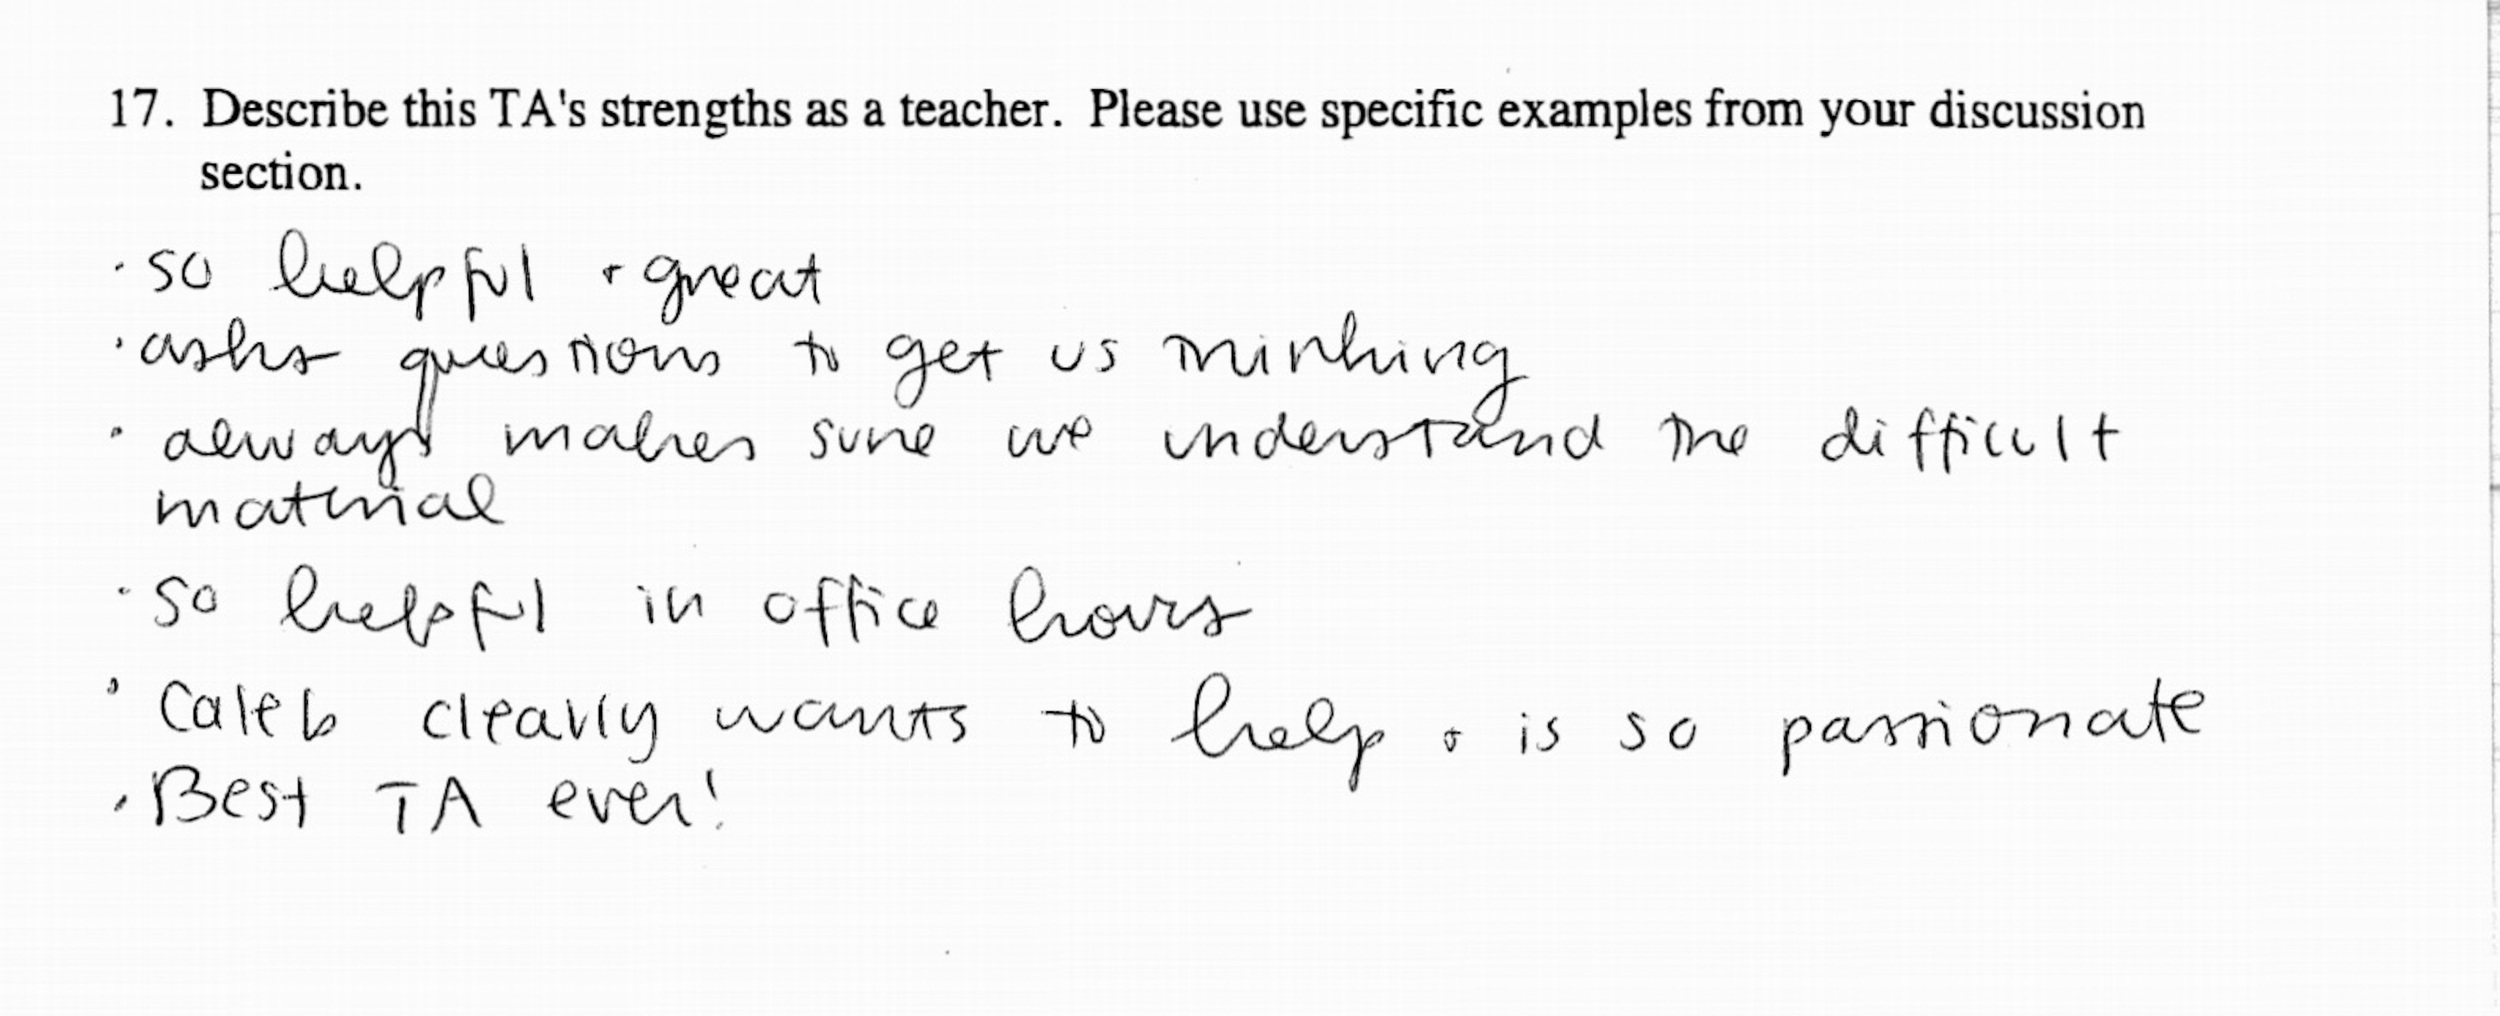 17. Describe this TA's strengths as a teacher. Please use specific examples from your discussion
section.
· so helpful + great
· asks questions to get us thinking
· always makes sure we understand the difficult
material
· so helpful in office hours
· Caleb clearly wants to help + is so passionate
· Best TA ever!